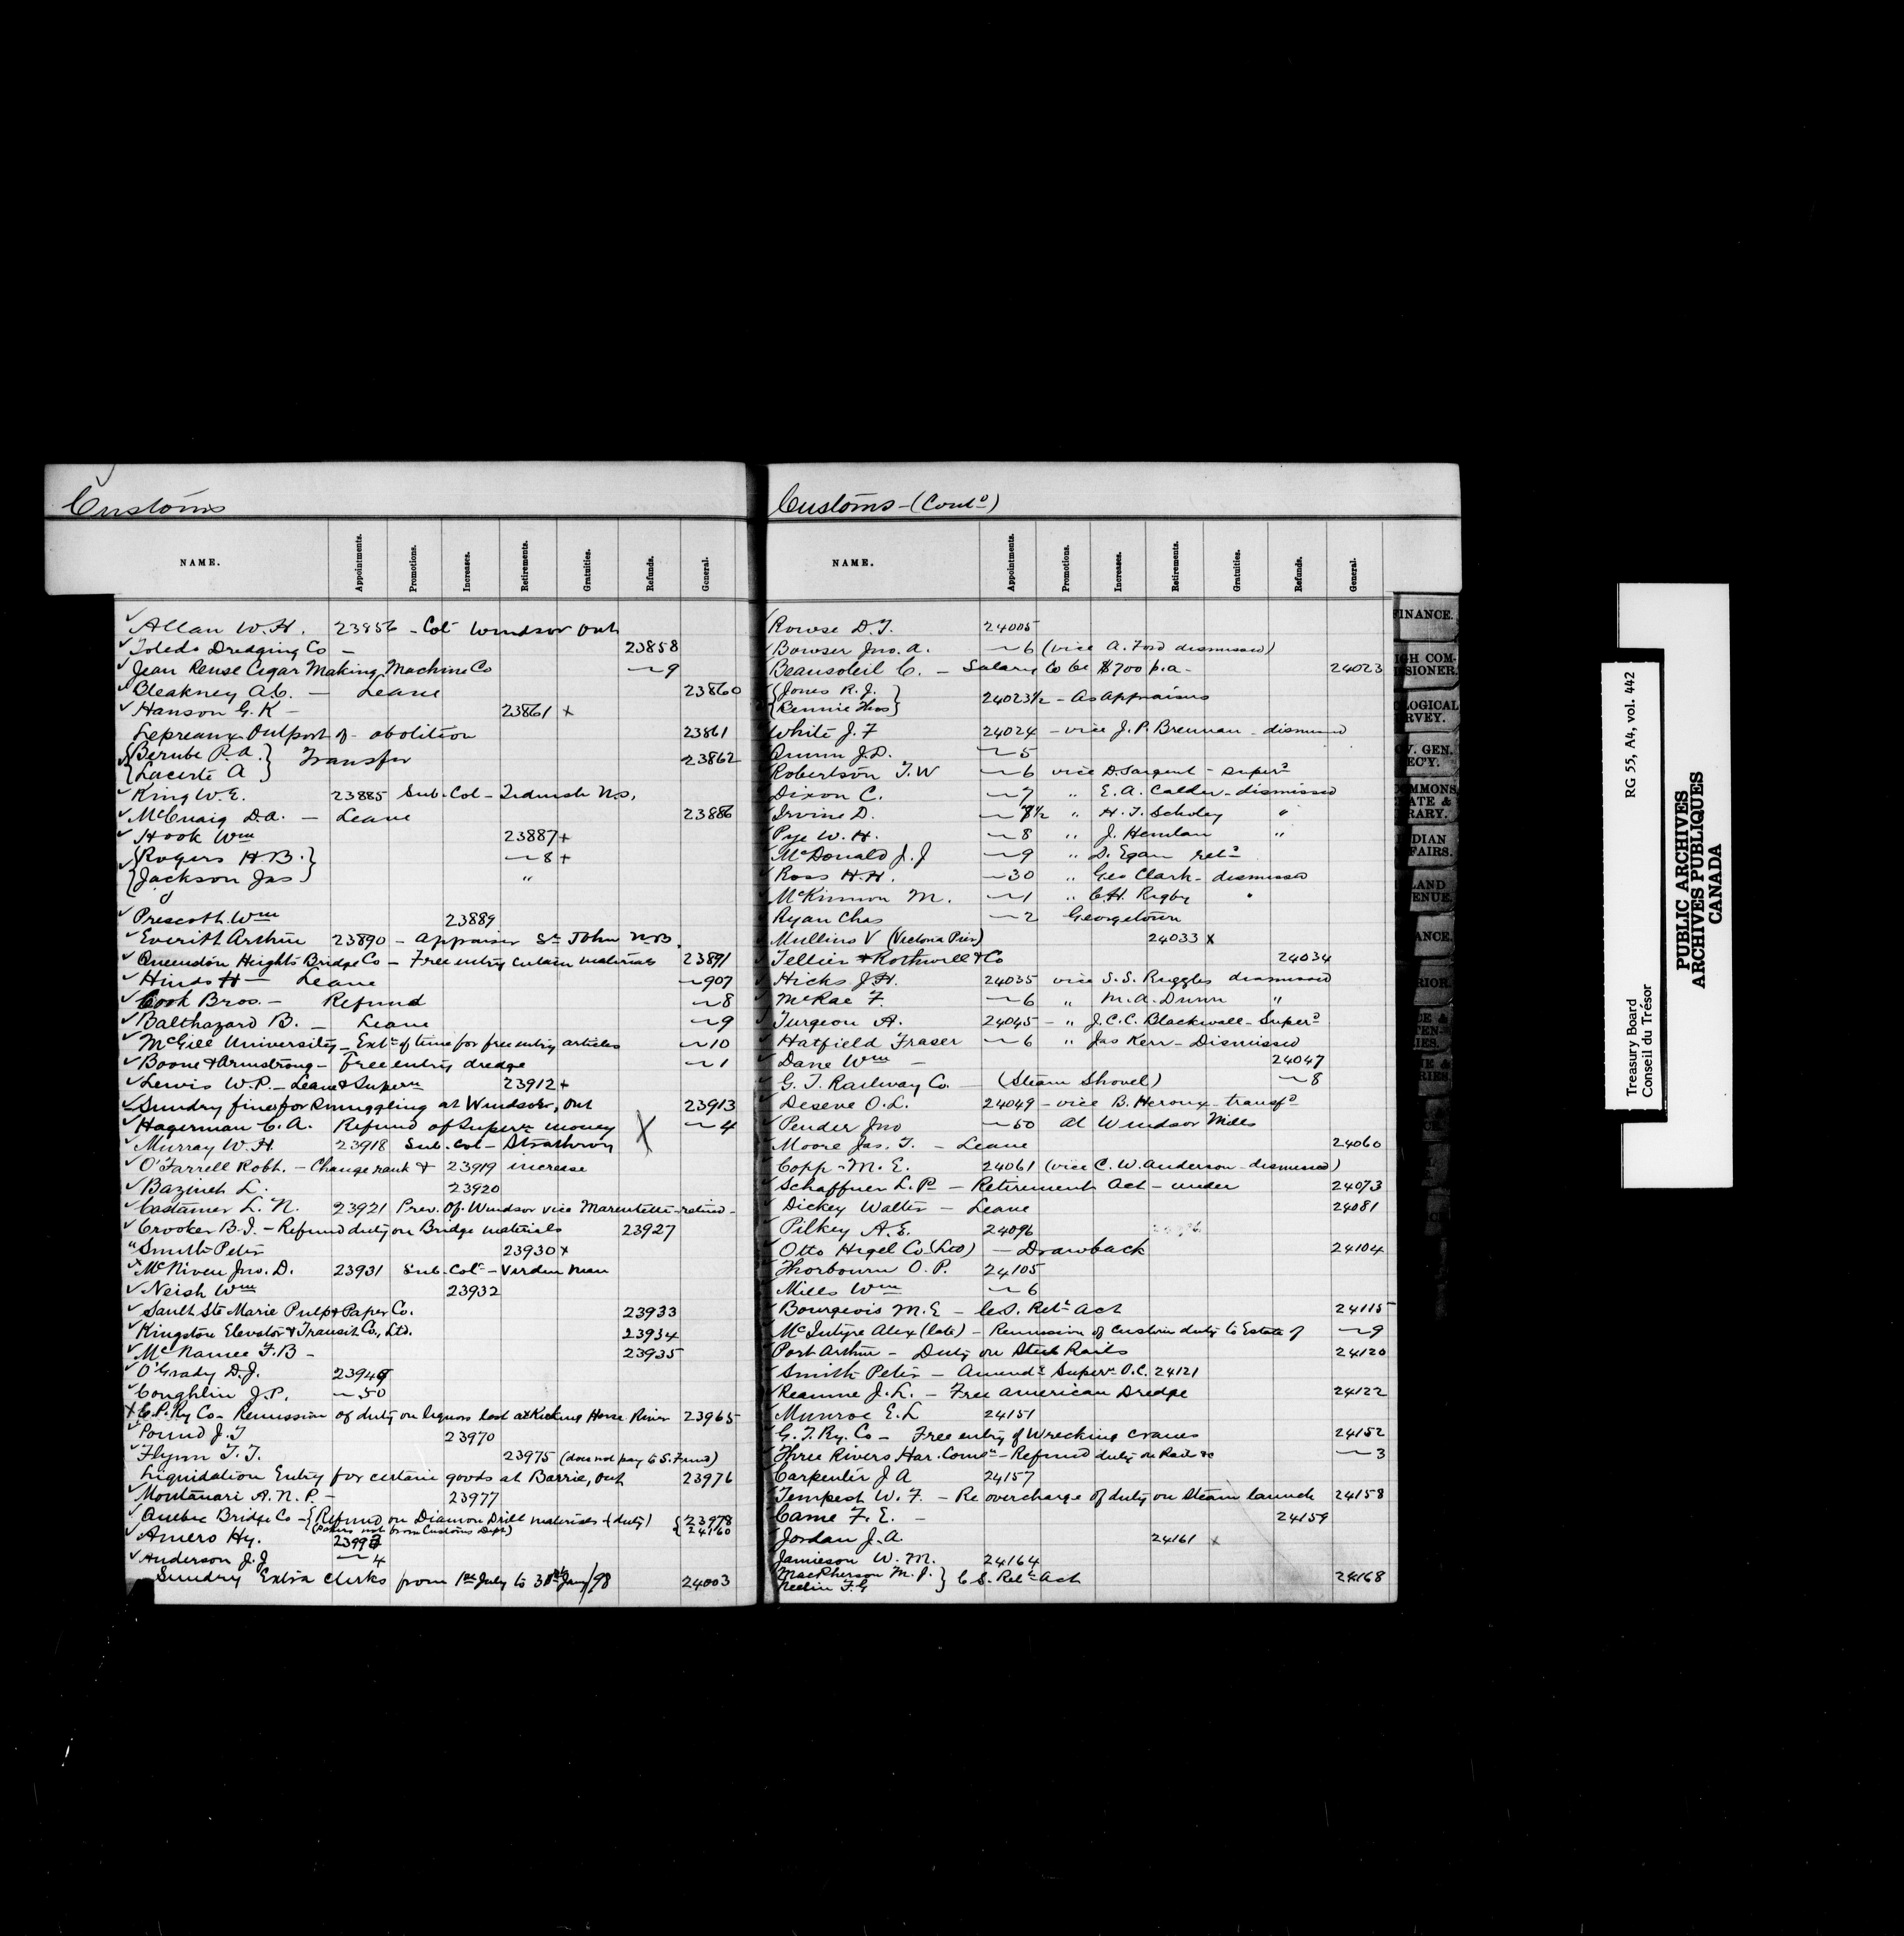 Customs
NAME. Appointments. Promotions. Increases. Retirements. Gratuities. Refunds. General.
✓ Allan W. H. 23856 - Colr Windsor Ont
✓ Toledo Dredging Co - 23858
✓ Jean Reuse Cigar Making Machine Co ~9
✓ Bleakney A.C. - Leave 23860
✓ Hanson G. K - 23861 x
Lepreaux Outport of - abolition 23861
✓ {Berube P.A.} Transfer 23862
{Lacerte A}
✓ King W. E. 23885 Sub. Col - Tidnish N.S.
✓ McCuaig D.A. - Leave 23886
✓ Hook Wm 23887 +
✓ {Rogers H.B.} ~8 +
{Jackson Jas} "
✓ Prescott Wm 23889
✓ Everitt Arthur 23890 - Appraiser St John N.B.
✓ Queenston Heights Bridge Co - Free entry certain materials 23891
✓ Hinds H - Leave ~907
✓ Cook Bros. - Refund ~8
✓ Balthazard B. - Leave ~9
✓ McGill University - Extn of time for free entry articles ~10
✓ Boone & Armstrong - Free entry dredge ~1
✓ Lewis W.P. - Leave & Supern 23912 +
✓ Sundry fines for Smuggling at Windsor, Ont 23913
✓ Hagerman C. A. Refund of Supern money X ~4
✓ Murray W. H. 23918 Sub. Col - Strathroy
✓ O'Farrell Robt. - Change rank & 23919 increase
✓ Bazinet L. 23920
✓ Costamer L. N. 23921 Prev. Of. Windsor vice Marentette - retired -
✓ Crooker B.I. - Refund duty on Bridge materials 23927
" Smith Peter 23930 x
x McNiven Jno. D. 23931 Sub. Colr - Virden Man
✓ Neish Wm 23932
✓ Sault Ste Marie Pulp & Paper Co. 23933
✓ Kingston Elevator & Transit Co., Ltd. 23934
✓ McNamee F.B - 23935
✓ O'Grady D.J. 23949
✓ Coughlin J.P. ~50
X C.P. Ry Co - Remission of duty on liquors lost at Kicking Horse River 23965
✓ Pound J. T 23970
✓ Flynn T. T. 23975 (does not pay to S. Fund)
Liquidation Entry for certain goods at Barrie, Ont 23976
✓ Montanari A. N. P. - 23977
✓ Quebec Bridge Co - {Refund on Diamon Drill materials (duty) {23978
(Papers not from Customs Dept) {24160
✓ Amero Hy. 23993
✓ Anderson J. J ~4
Sundry Extra clerks from 1st July to 31st Jany/98 24003
Customs - (Contd)
NAME. Appointments. Promotions. Increases. Retirements. Gratuities. Refunds. General.
Rowse D. T. 24005
Bowser Jno. A. ~6 (vice A. Ford dismissed)
Beausoleil C. - Salary to be $700 p.a - 24023
{Jones R. J.} 24023½ - As Appraisers
{Rennie Thos}
White J. F 24024 - vice J. P. Brennan - dismissed
Quinn J.D. ~5
Robertson T. W ~6 vice D. Sargent - superd
Dixon C. ~7 " E. A. Calder - dismissed
Irvine D. ~7½ " H. T. Scholey "
Pye W. H. ~8 " J. Henilan "
McDonald J. J ~9 " D. Egan retd
Ross H. H. ~30 " Geo Clark - dismissed
McKinnon M. ~1 " C.H. Rigby "
Ryan Chas ~2 Georgetown
Mullins V (Victoria Pier) 24033 x
Tellier & Rothwell & Co 24034
Hicks J.H. 24035 vice S.S. Ruggles dismissed
McRae F. ~6 " M. A. Dunn "
Turgeon A. 24045 - " J.C.C. Blackwell - Superd
Hatfield Fraser ~6 " Jas Kerr - Dismissed
Dane Wm - 24047
G. T. Railway Co. - (Steam Shovel) ~8
Deseve O. L. 24049 - vice B. Heroux - transfd
Pender Jno ~50 at Windsor Mills
Moore Jas. T. - Leave 24060
Copp - M. E. 24061 (vice C. W. Anderson - dismissed)
Schaffner L. P - Retirement Act - under 24073
Dickey Walter - Leave 24081
Pilkey A. E. 24096
Otto Higel Co (Ltd) - Drawback 24104
Thorbourn O. P. 24105
Mills Wm ~6
Bourgeois M. E - C.S. Rett Act 24115
McIntyre Alex (late) - Remission of custom duty to Estate of ~9
Port Arthur - Duty on Steel Rails 24120
Smith Peter - Amendg Supern O.C. 24121
Reaume J. L. - Free American Dredge 24122
Munroe E. L 24151
G. T. Ry. Co - Free entry of Wrecking Cranes 24152
Three Rivers Har. Comrs - Refund duty on Rails &c ~3
Carpenter J A 24157
Tempest W. F. - Re overcharge of duty on Steam launch 24158
Came F. E. - 24159
Jordan J. A. 24161 x
Jamieson W. M. 24164
MacPherson M. J. } C. S. Rett Act 24168
Neelin F. G
FINANCE.
IGH COM-
SSIONER.
OLOGICAL
RVEY.
OV. GEN.
EC'Y.
OMMONS,
ATE &
RARY.
NDIAN
FAIRS.
LAND
ENUE.
Treasury Board RG 55, A4, vol. 442
Conseil du Trésor
PUBLIC ARCHIVES
ARCHIVES PUBLIQUES
CANADA